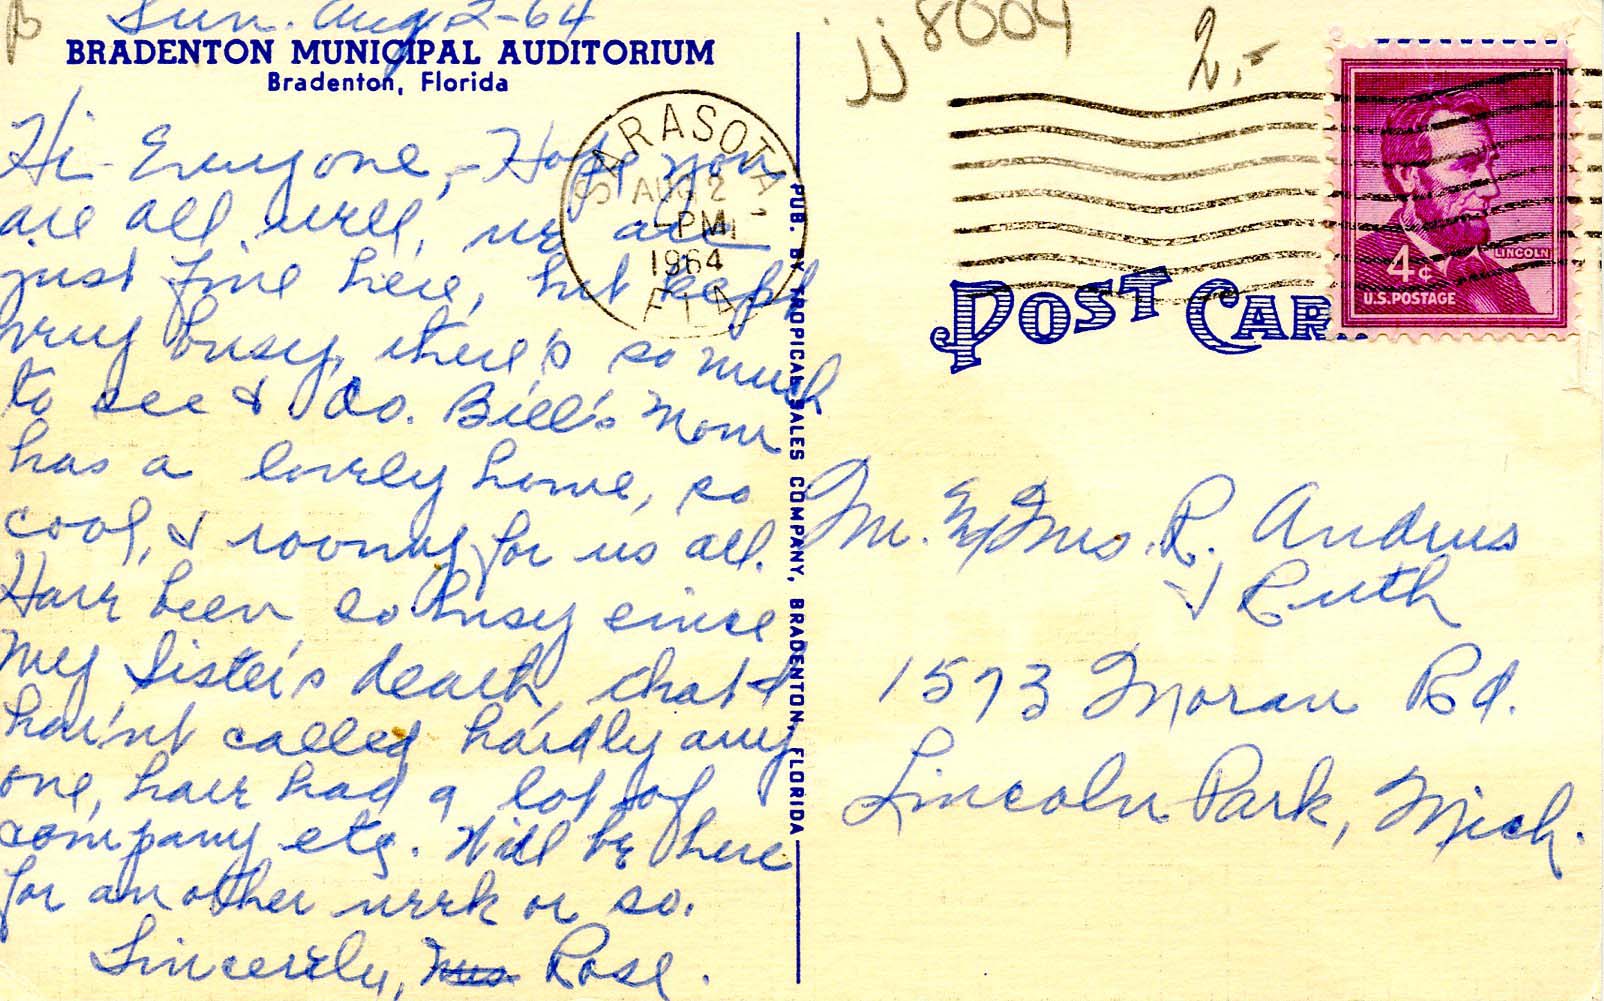 Sun. Aug 2-64
BRADENTON MUNICIPAL AUDITORIUM
Bradenton, Florida
Hi Everyone, - Hope you
are all well, we are
just fine here, but kept
very busy, there's so much
to see & do. Bill's Mom
has a lovely home, so
cool, & roomy for us all.
Have been so busy since
My Sister's death, that I
hav'nt called hardly any
one, have had a lot of
company etc. Will be here
for another week or so.
Sincerely, Mrs Rose.
PUB. BY TROPICAL SALES COMPANY, BRADENTON, FLORIDA
jj 8004
2,-
SARASOTA
AUG 2
PM
1964
FLA
LINCOLN
4¢
U.S. POSTAGE
POST CAR
Mr. & Mrs. R. Andrus
& Ruth
1573 Moran Rd.
Lincoln Park, Mich.